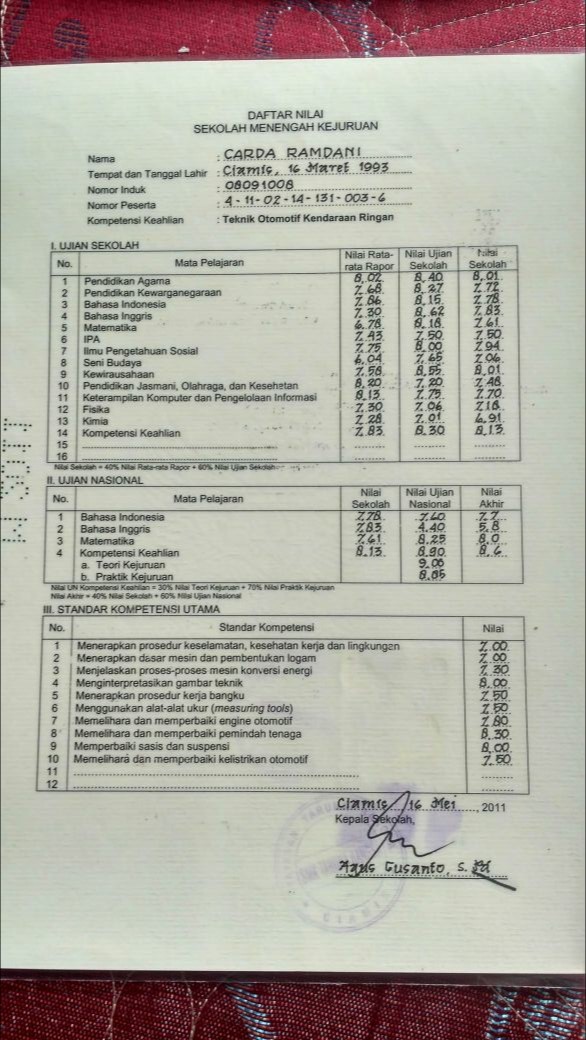 DAFTAR NILAI
SEKOLAH MENENGAH KEJURUAN
Nama : CARDA RAMDANI
Tempat dan Tanggal Lahir : Ciamis, 16 Maret 1993
Nomor Induk : 08091008
Nomor Peserta : 4-11-02-14-131-003-6
Kompetensi Keahlian : Teknik Otomotif Kendaraan Ringan
I. UJIAN SEKOLAH
No. Mata Pelajaran Nilai Rata-rata Rapor Nilai Ujian Sekolah Nilai Sekolah
1 Pendidikan Agama 8,02 8,40 8,01
2 Pendidikan Kewarganegaraan 7,68 8,27 7,72
3 Bahasa Indonesia 7,86 8,15 7,78
4 Bahasa Inggris 7,30 8,62 7,83
5 Matematika 6,78 8,18 7,61
6 IPA 7,43 7,50 7,50
7 Ilmu Pengetahuan Sosial 7,75 8,00 7,94
8 Seni Budaya 6,04 7,65 7,06
9 Kewirausahaan 7,58 8,55 8,01
10 Pendidikan Jasmani, Olahraga, dan Kesehatan 8,20 7,20 7,48
11 Keterampilan Komputer dan Pengelolaan Informasi 8,13 7,75 7,70
12 Fisika 7,30 7,06 7,18
13 Kimia 7,28 7,01 6,91
14 Kompetensi Keahlian 7,83 8,30 8,13
15
16
Nilai Sekolah = 40% Nilai Rata-rata Rapor + 60% Nilai Ujian Sekolah
II. UJIAN NASIONAL
No. Mata Pelajaran Nilai Sekolah Nilai Ujian Nasional Nilai Akhir
1 Bahasa Indonesia 7,78 7,60 7,7
2 Bahasa Inggris 7,83 4,40 5,8
3 Matematika 7,61 8,25 8,0
4 Kompetensi Keahlian 8,13 8,90 8,6
a. Teori Kejuruan 9,00
b. Praktik Kejuruan 8,85
Nilai UN Kompetensi Keahlian = 30% Nilai Teori Kejuruan + 70% Nilai Praktik Kejuruan
Nilai Akhir = 40% Nilai Sekolah + 60% Nilai Ujian Nasional
III. STANDAR KOMPETENSI UTAMA
No. Standar Kompetensi Nilai
1 Menerapkan prosedur keselamatan, kesehatan kerja dan lingkungan 7,00
2 Menerapkan dasar mesin dan pembentukan logam 7,00
3 Menjelaskan proses-proses mesin konversi energi 7,30
4 Menginterpretasikan gambar teknik 8,00
5 Menerapkan prosedur kerja bangku 7,50
6 Menggunakan alat-alat ukur (measuring tools) 7,50
7 Memelihara dan memperbaiki engine otomotif 7,80
8 Memelihara dan memperbaiki pemindah tenaga 8,30
9 Memperbaiki sasis dan suspensi 8,00
10 Memelihara dan memperbaiki kelistrikan otomotif 7,50
11
12
Ciamis, 16 Mei, 2011
Kepala Sekolah,
Agus Gusanto, S.Pd